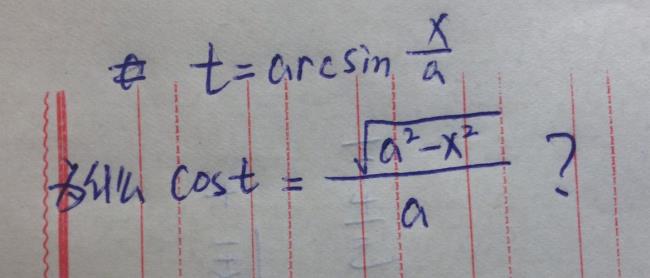 t = arcsin x/a
cost = √(a²-x²)/a ?